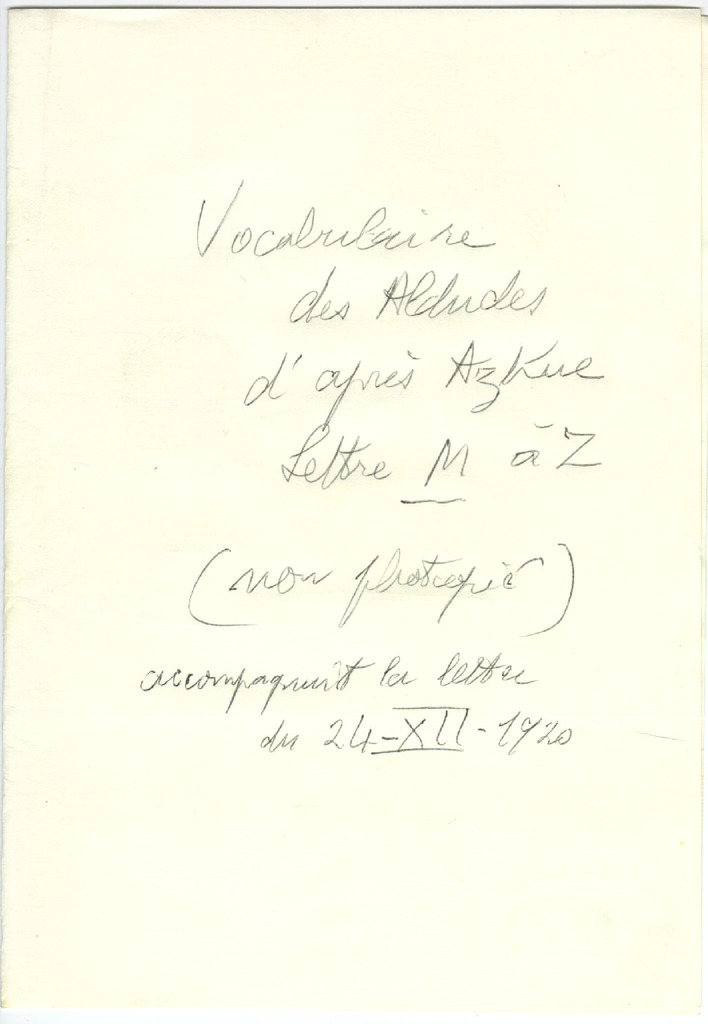 Vocabulaire
des Aldudes
d'après Azkue
Lettre M à Z
(non photocopié)
accompagnait la lettre
du 24-XII-1920